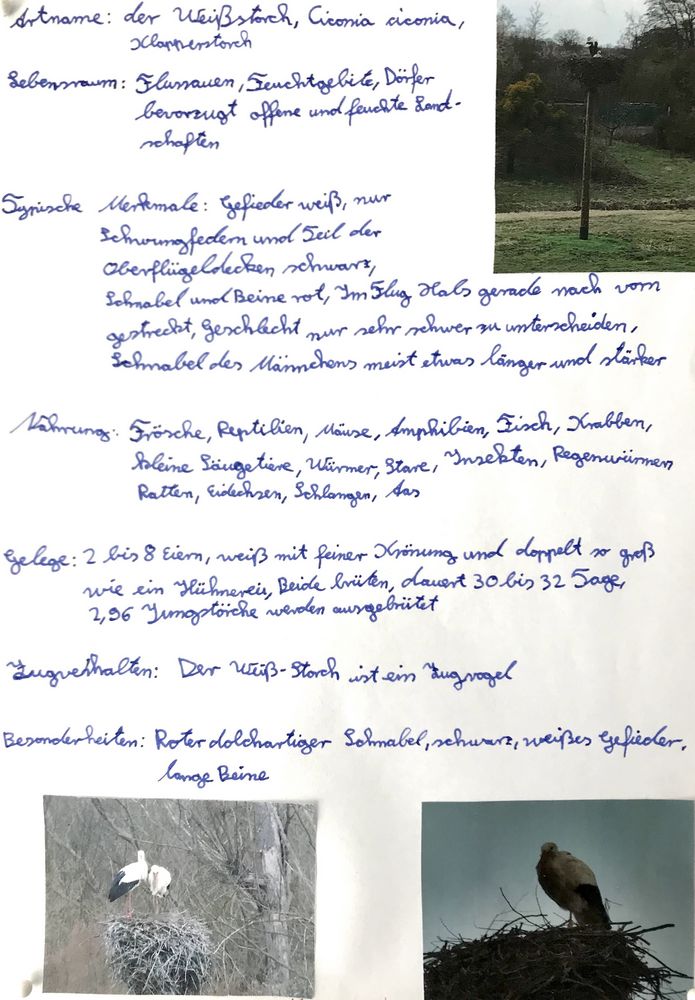 Artname: der Weißstorch, Ciconia ciconia,
Klapperstorch
Lebensraum: Flussauen, Feuchtgebite, Dörfer
bevorzugt offene und feuchte Land-
schaften
Typische Merkmale: Gefieder weiß, nur
Schwungfedern und Teil der
Oberflügeldecken schwarz,
Schnabel und Beine rot, Im Flug Hals gerade nach vorn
gestreckt, Geschlecht nur sehr schwer zu unterscheiden,
Schnabel des Männchens meist etwas länger und stärker
Nahrung: Frösche, Reptilien, Mäuse, Amphibien, Fisch, Krabben,
kleine Säugetiere, Würmer, Stare, Insekten, Regenwürmer
Ratten, Eidechsen, Schlangen, Aas
Gelege: 2 bis 8 Eiern, weiß mit feiner Körnung und doppelt so groß
wie ein Hühnerei, Beide brüten, dauert 30 bis 32 Tage,
2,96 Jungstörche werden ausgebrütet
Zugverhalten: Der Weiß-Storch ist ein Zugvogel
Besonderheiten: Roter dolchartiger Schnabel, schwarz, weißes Gefieder,
lange Beine